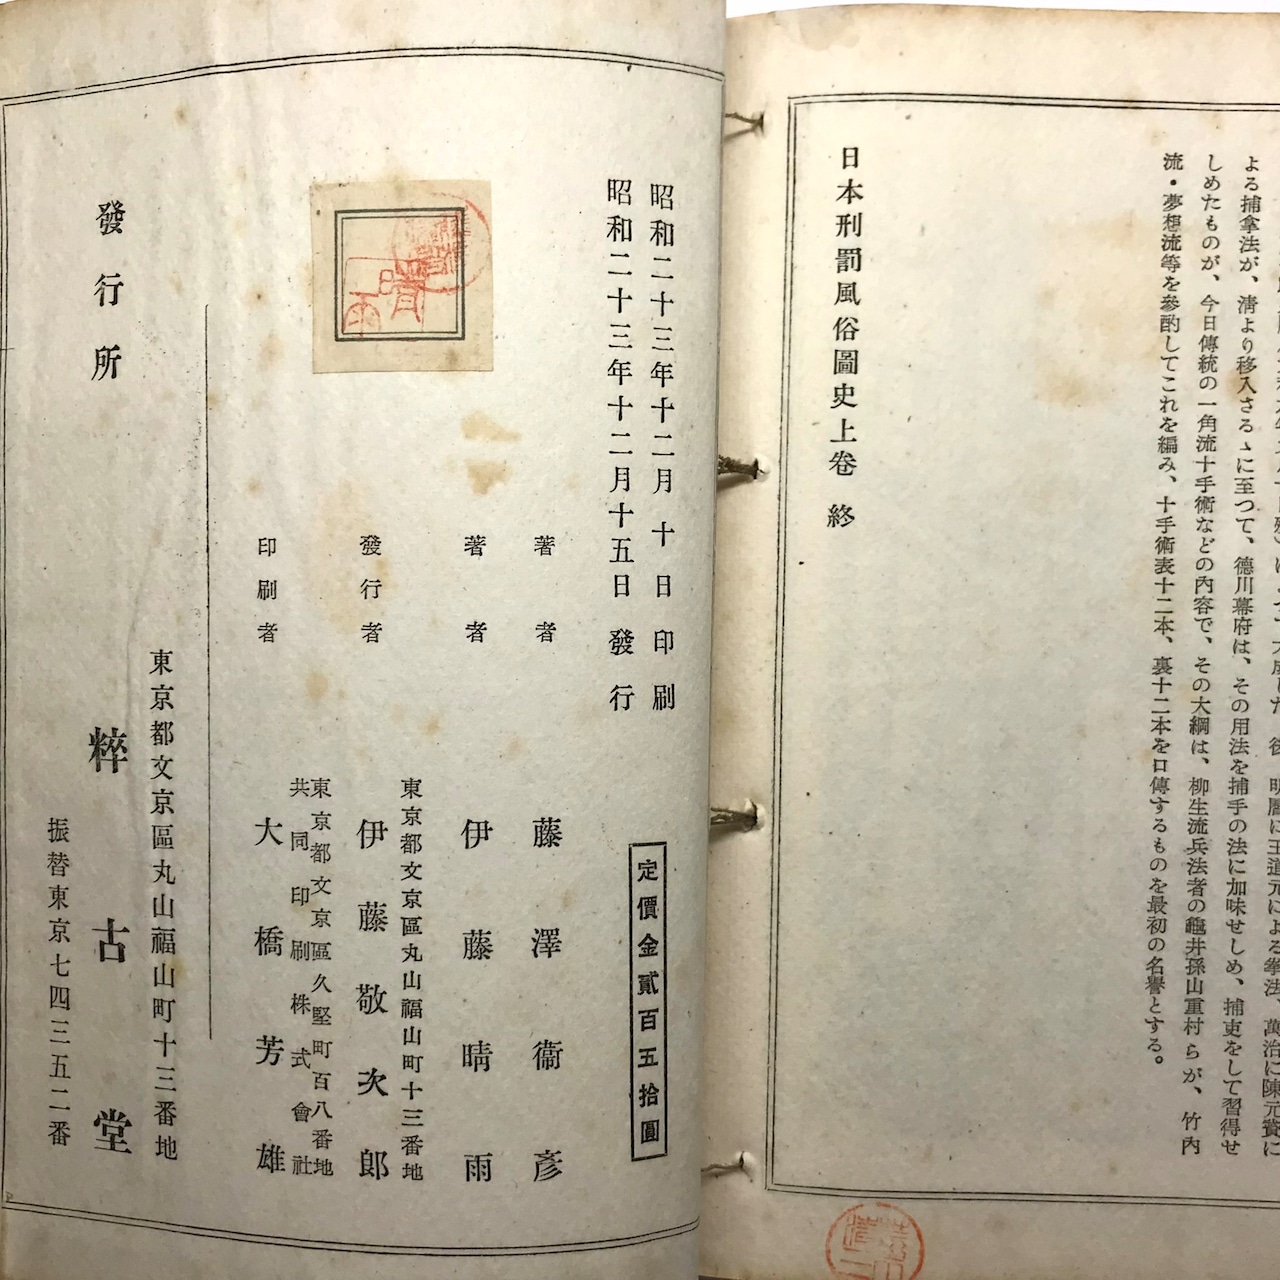 よる捕拿法が、淸より移入さるゝに至つて、德川幕府は、その用法を捕手の法に加味せしめ、捕吏をして習得せ
しめたものが、今日傳統の一角流十手術などの內容で、その大綱は、柳生流兵法者の龜井孫山重村らが、竹內
流・夢想流等を參酌してこれを編み、十手術表十二本、裏十二本を口傳するものを最初の名譽とする。
日本刑罰風俗圖史上卷 終
昭和二十三年十二月十日印刷
昭和二十三年十二月十五日發行
定價金貳百五拾圓
著者 藤澤衞彥
著者 伊藤晴雨
東京都文京區丸山福山町十三番地
發行者 伊藤敬次郎
東京都文京區久堅町百八番地
共同印刷株式會社
印刷者 大橋芳雄
東京都文京區丸山福山町十三番地
發行所 粹古堂
振替東京七四三五二番